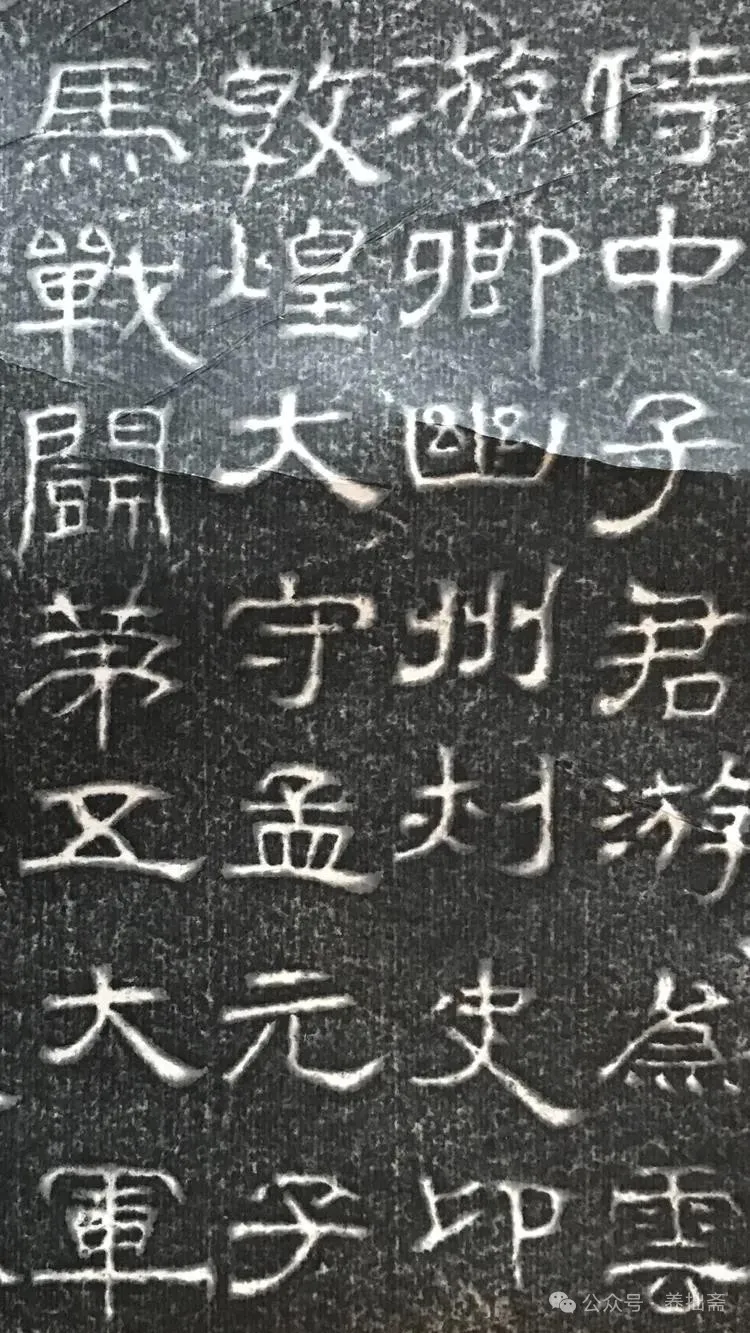 侍中子君游為雲
游卿幽州刺史印
敦煌大守孟元子
馬戰鬪苐五大軍
公众号 · 养拙斋